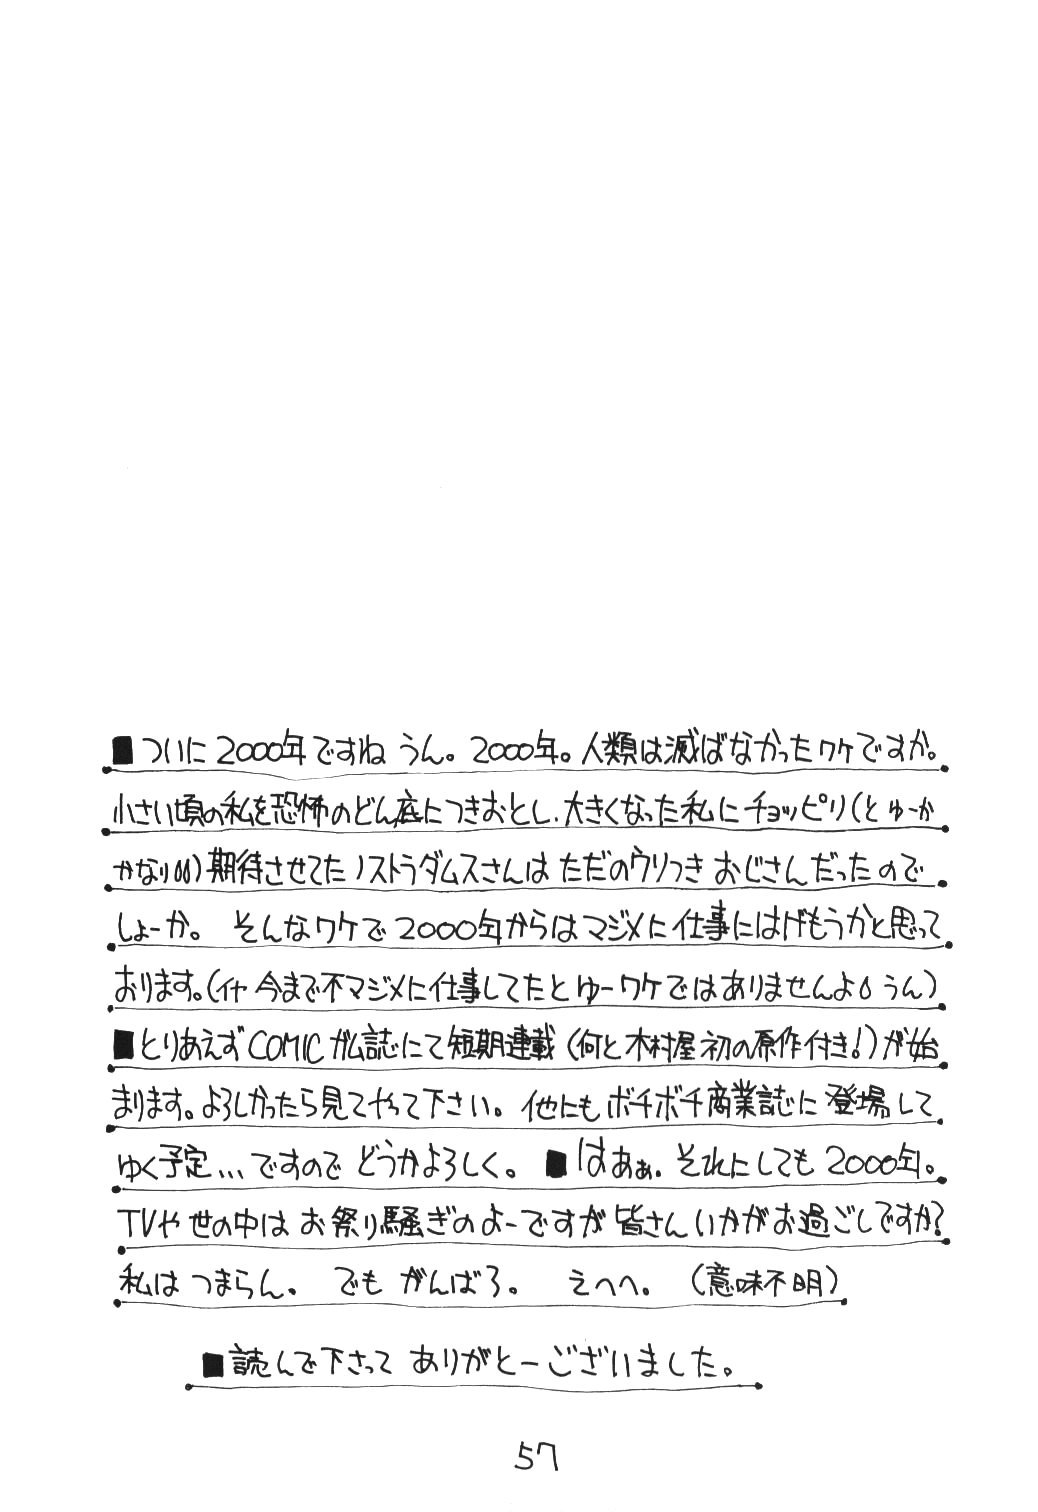 ■ついに2000年ですね うん。2000年。人類は滅ばなかったワケですか。
小さい頃の私を恐怖のどん底につきおとし、大きくなった私にチョッピリ(とゆーか
かなり)期待させてたノストラダムスさんは ただのウリつき おじさんだったので
しょーか。 そんなワケで2000年からはマジメに仕事にはげもうかと思って
おります。(イヤ 今まで不マジメに仕事してたとゆーワケではありませんよ うん)
■とりあえずCOMICガム誌にて短期連載(何と木村屋初の原作付き!)が始
まります。よろしかったら見てやって下さい。他にもボチボチ商業誌に登場して
ゆく予定...ですので どうかよろしく。 ■はあぁ。それにしても2000年。
TVや世の中はお祭り騒ぎのよーですが皆さんいかがお過ごしですか?
私は つまらん。 でも がんばろ。 えへへ。 (意味不明)
■読んで下さって ありがとーございました。
57